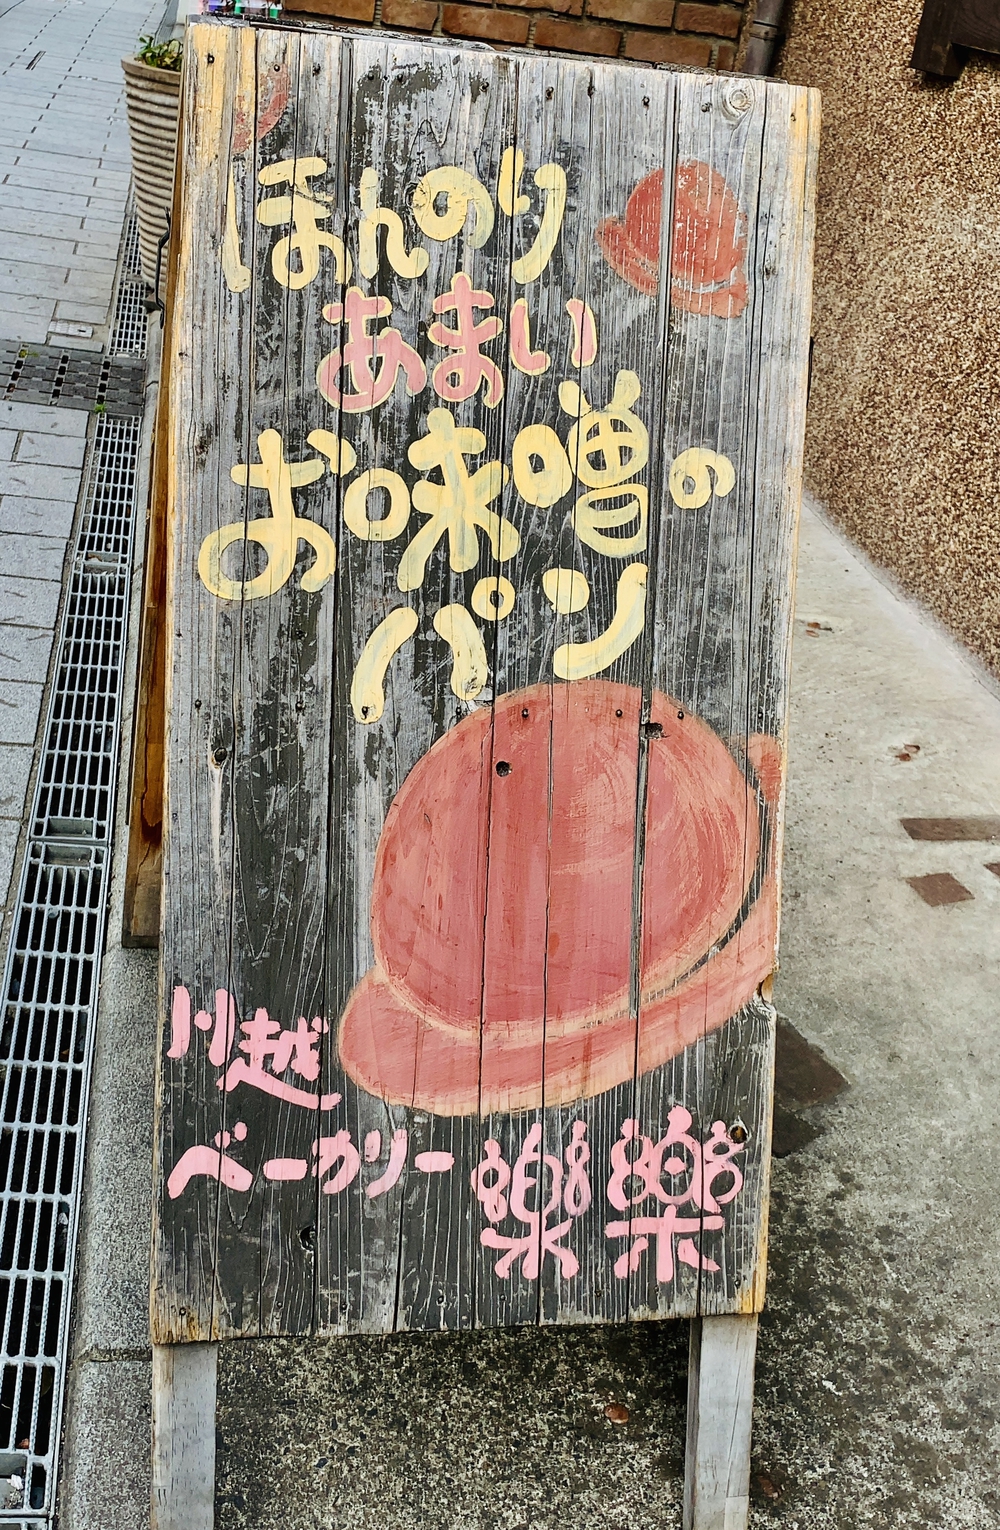 ほんのり
あまい
お味噌の
パン
川越
ベーカリー 樂樂